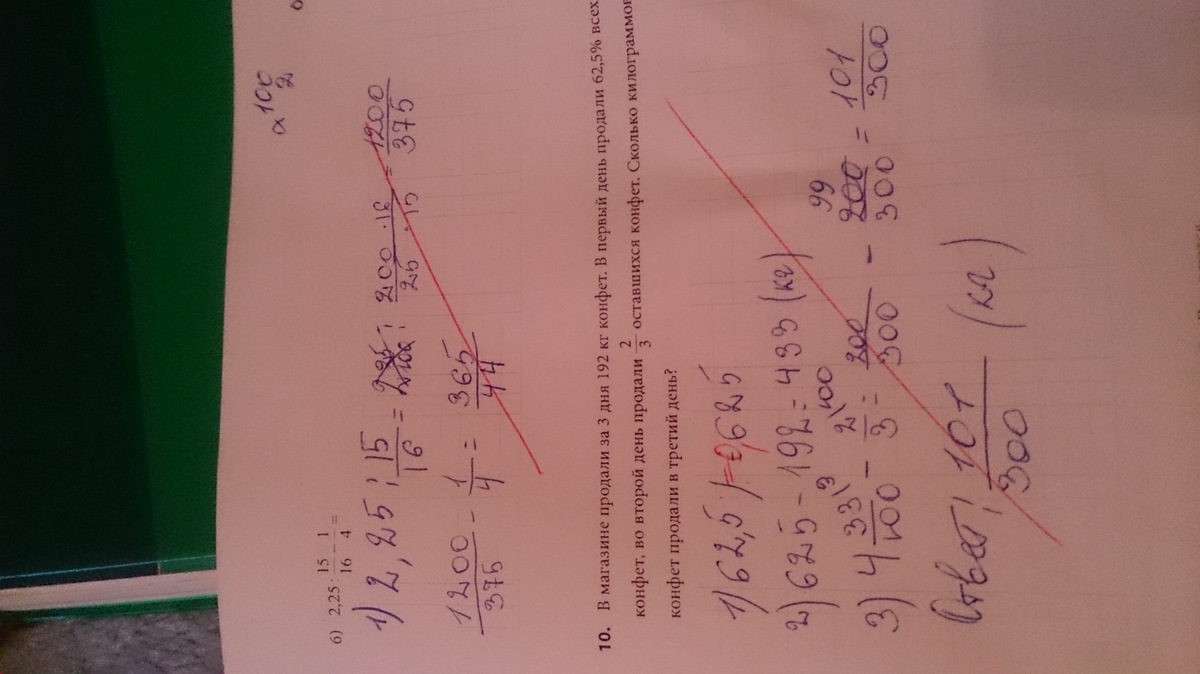 100
2
б) 2,25 : 15/16 − 1/4 =
1) 2,25 : 15/16 = : 200 · 16 / 25 · 15 = 1200/375
1200/375 − 1/4 = 365/44
10. В магазине продали за 3 дня 192 кг конфет. В первый день продали 62,5% всех
конфет, во второй день продали 2/3 оставшихся конфет. Сколько килограммов
конфет продали в третий день?
1) 62,5 = 0,625
2) 625 − 192 = 433 (кг)
3) 4 33/100 − 2/3 = 200/300 − 99 200/300 = 101/300
Ответ: 101/300 (кг)